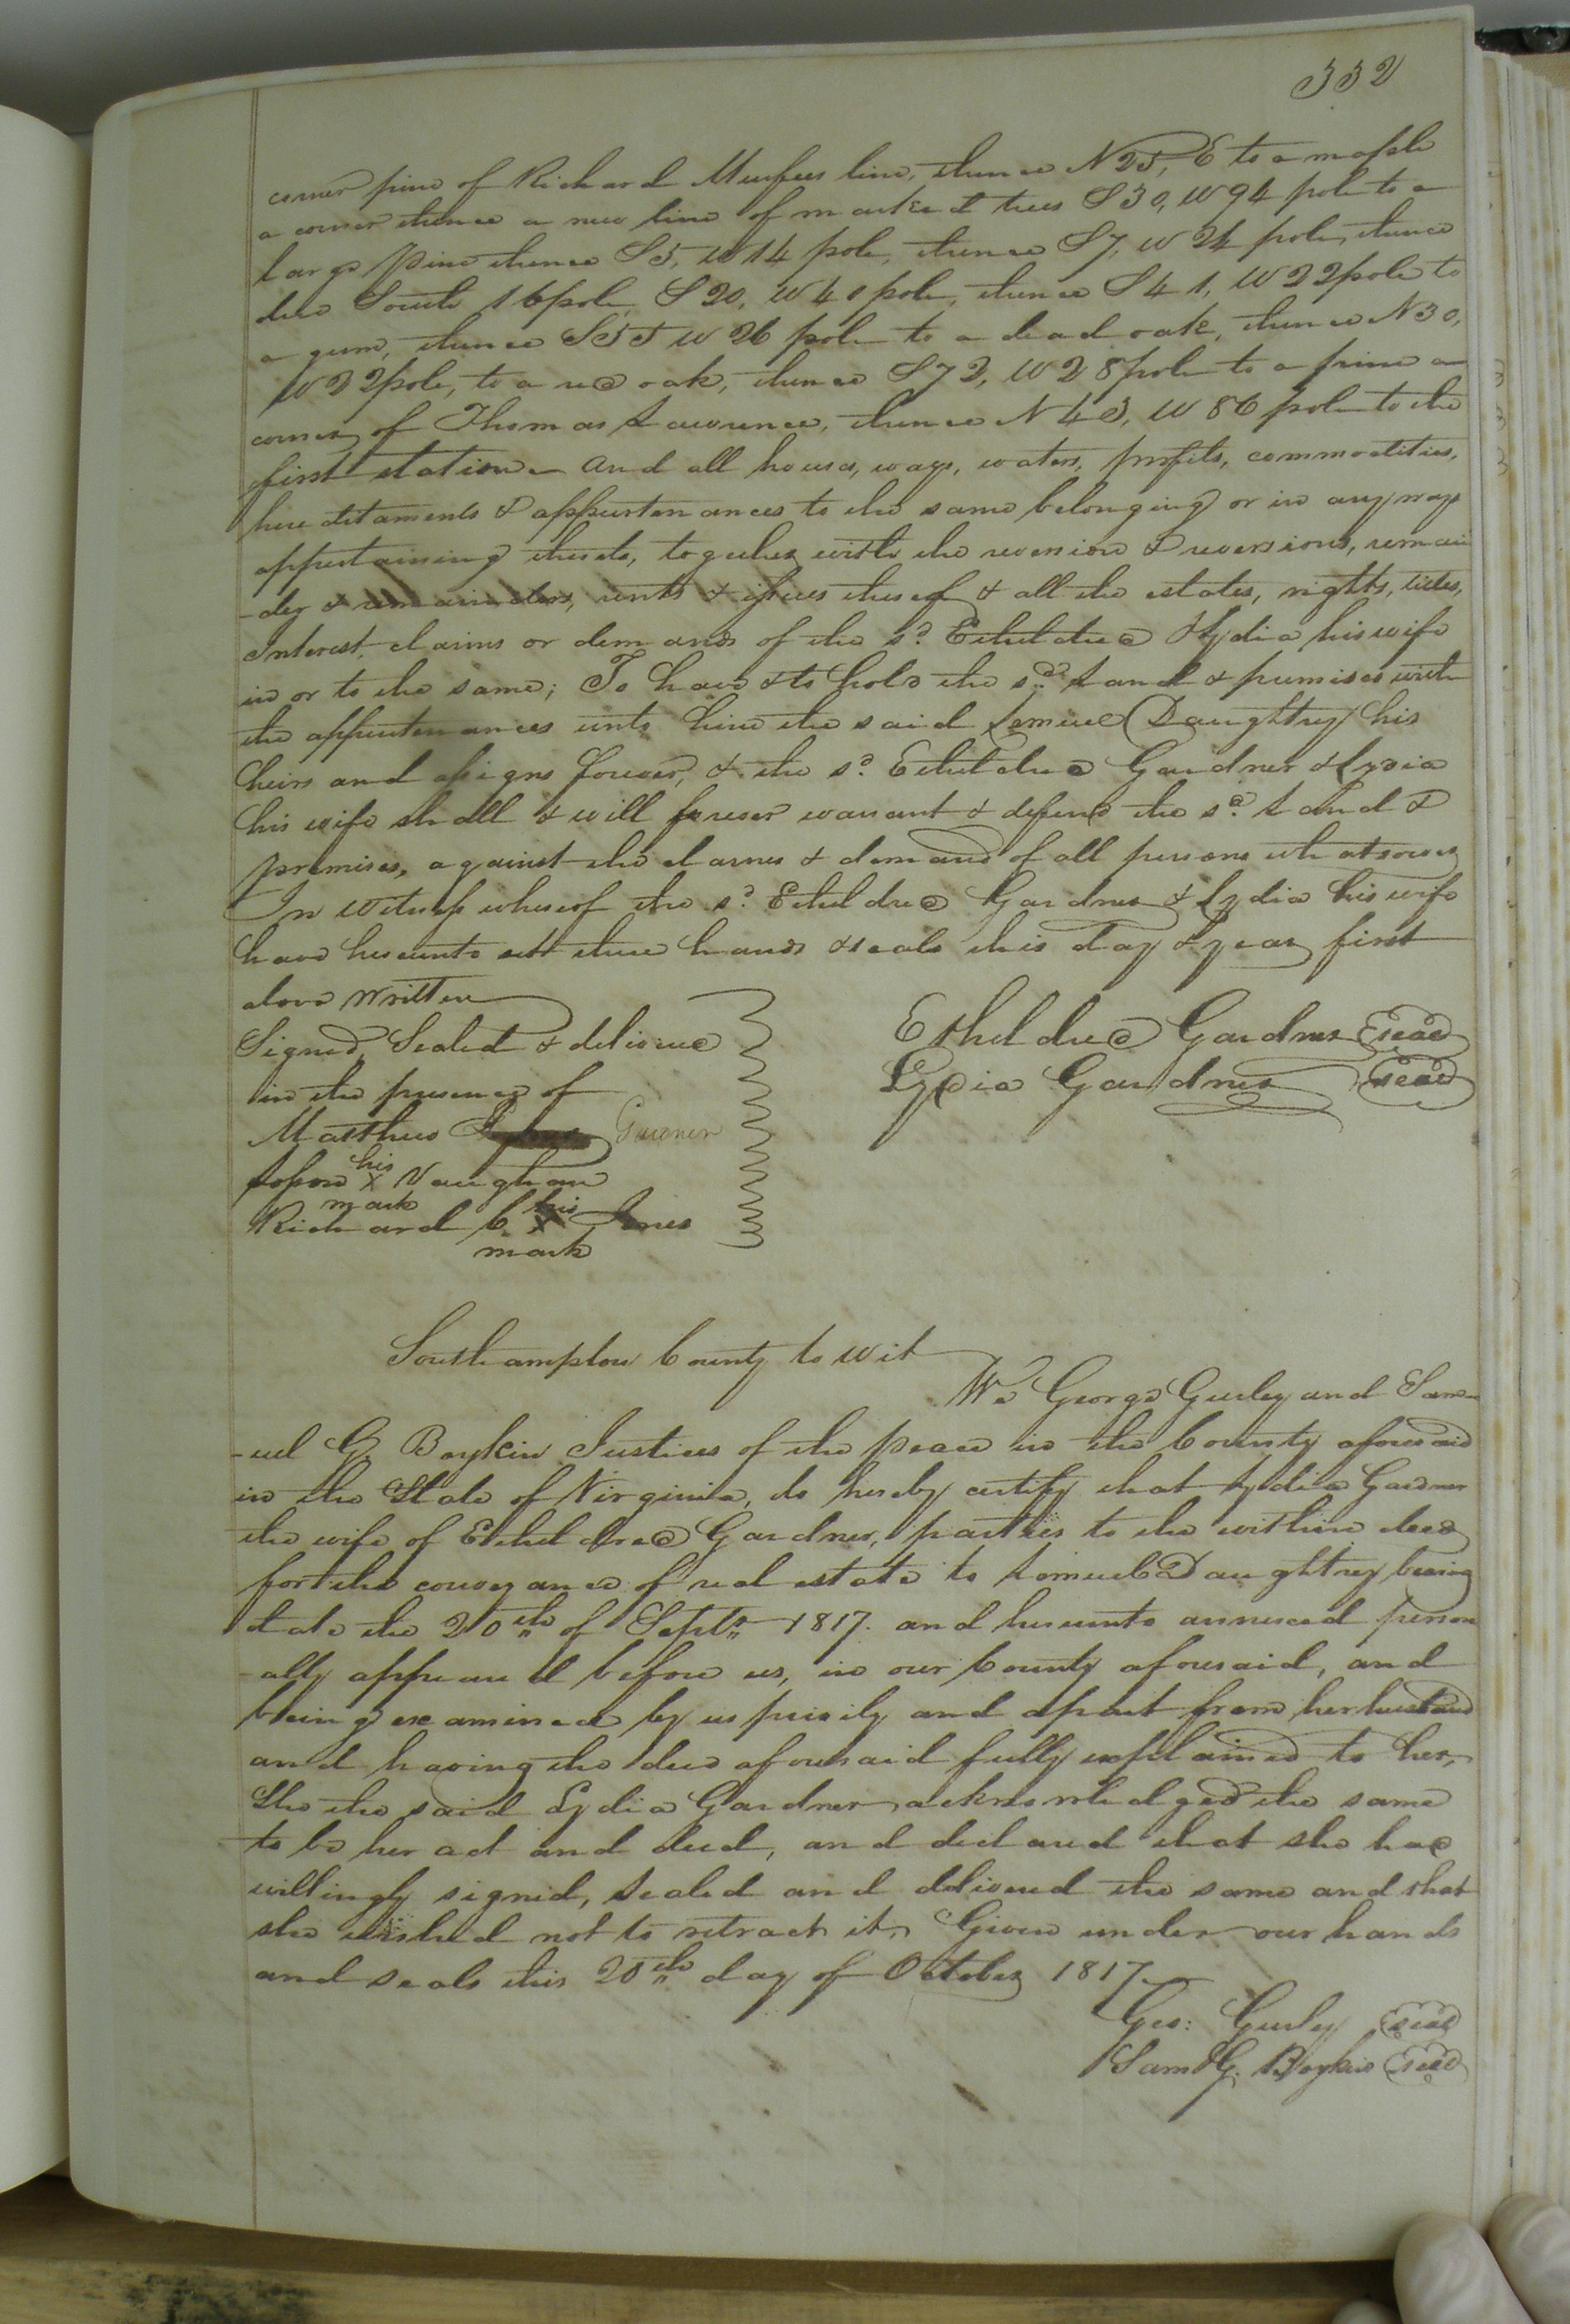 332
corner pine of Richard Murfees line, thence N 25, E to a maple
a corner thence a new line of marked trees S 30, W 94 pole to a
large Pine thence S 5, W 14 pole, thence S 7, W 24 pole, thence
due South 16 pole, S 20, W 40 pole, thence S 41, W 22 pole to
a gum, thence S 55 W 26 pole to a dead oak, thence N 30,
W 22 pole, to a red oak, thence S 72, W 28 pole to a pine a
corner of Thomas Lawrence, thence N 43, W 86 pole to the
first station And all houses, ways, waters, profits, commodities,
hereditaments & appurtenances to the same belonging or in any ways
appertaining thereto, together with the reversion & reversions, remain
-der & remainders, rents & issues thereof & all the estates, rights, titles,
Interest, claims or demands of the sd. Etheldred & Lydia his wife
in or to the same; To have & to hold the sd. Land & premises with
the appurtenances unto him the said Lemuel Daughtrey his
heirs and assigns forever, & the sd. Etheldred Gardner & Lydia
his wife shall & will forever warrant & defend the sd. Land &
premises, against the claims & demands of all persons whatsoever
In witness whereof the sd. Etheldred Gardner & Lydia his wife
have hereunto sett there hands & seals this day & year first
above written
Signed, Sealed & delivered
in the presence of
Matthew Gardner
his
X Vaughan
mark
Richard C. his X Jones
mark
Etheldred Gardner seal
Lydia Gardner seal
Southampton County to wit
We George Gurley and Sam-
-uel G. Boykin Justices of the peace in the County aforesaid
in the State of Virginia, do hereby certify that Lydia Gardner
the wife of Etheldred Gardner, parties to the within deed
for the conveyance of real estate to Lemuel Daughtrey bearing
date the 20th of Septr. 1817. and hereunto annexed person
-ally appeared before us, in our County aforesaid, and
being examined by us privily and apart from her husband
and having the deed aforesaid fully explained to her,
She the said Lydia Gardner acknowledged the same
to be her act and deed, and declared that she had
willingly signed, sealed and delivered the same and that
she wished not to retract it, Given under our hands
and seals this 20th day of October 1817
Geo: Gurley seal
Saml G. Boykin seal